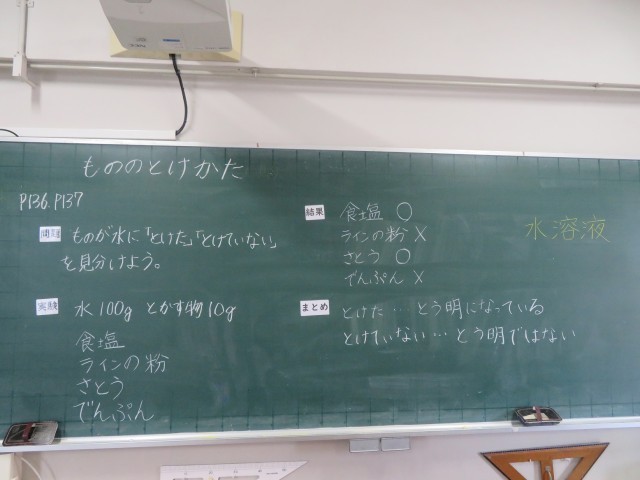 もののとけかた
P136.P137
問題 ものが水に「とけた」「とけていない」
を見分けよう。
実験 水100g とかす物10g
食塩
ラインの粉
さとう
でんぷん
結果 食塩 ○
ラインの粉 ×
さとう ○
でんぷん ×
まとめ とけた…とう明になっている
とけていない…とう明ではない
水溶液